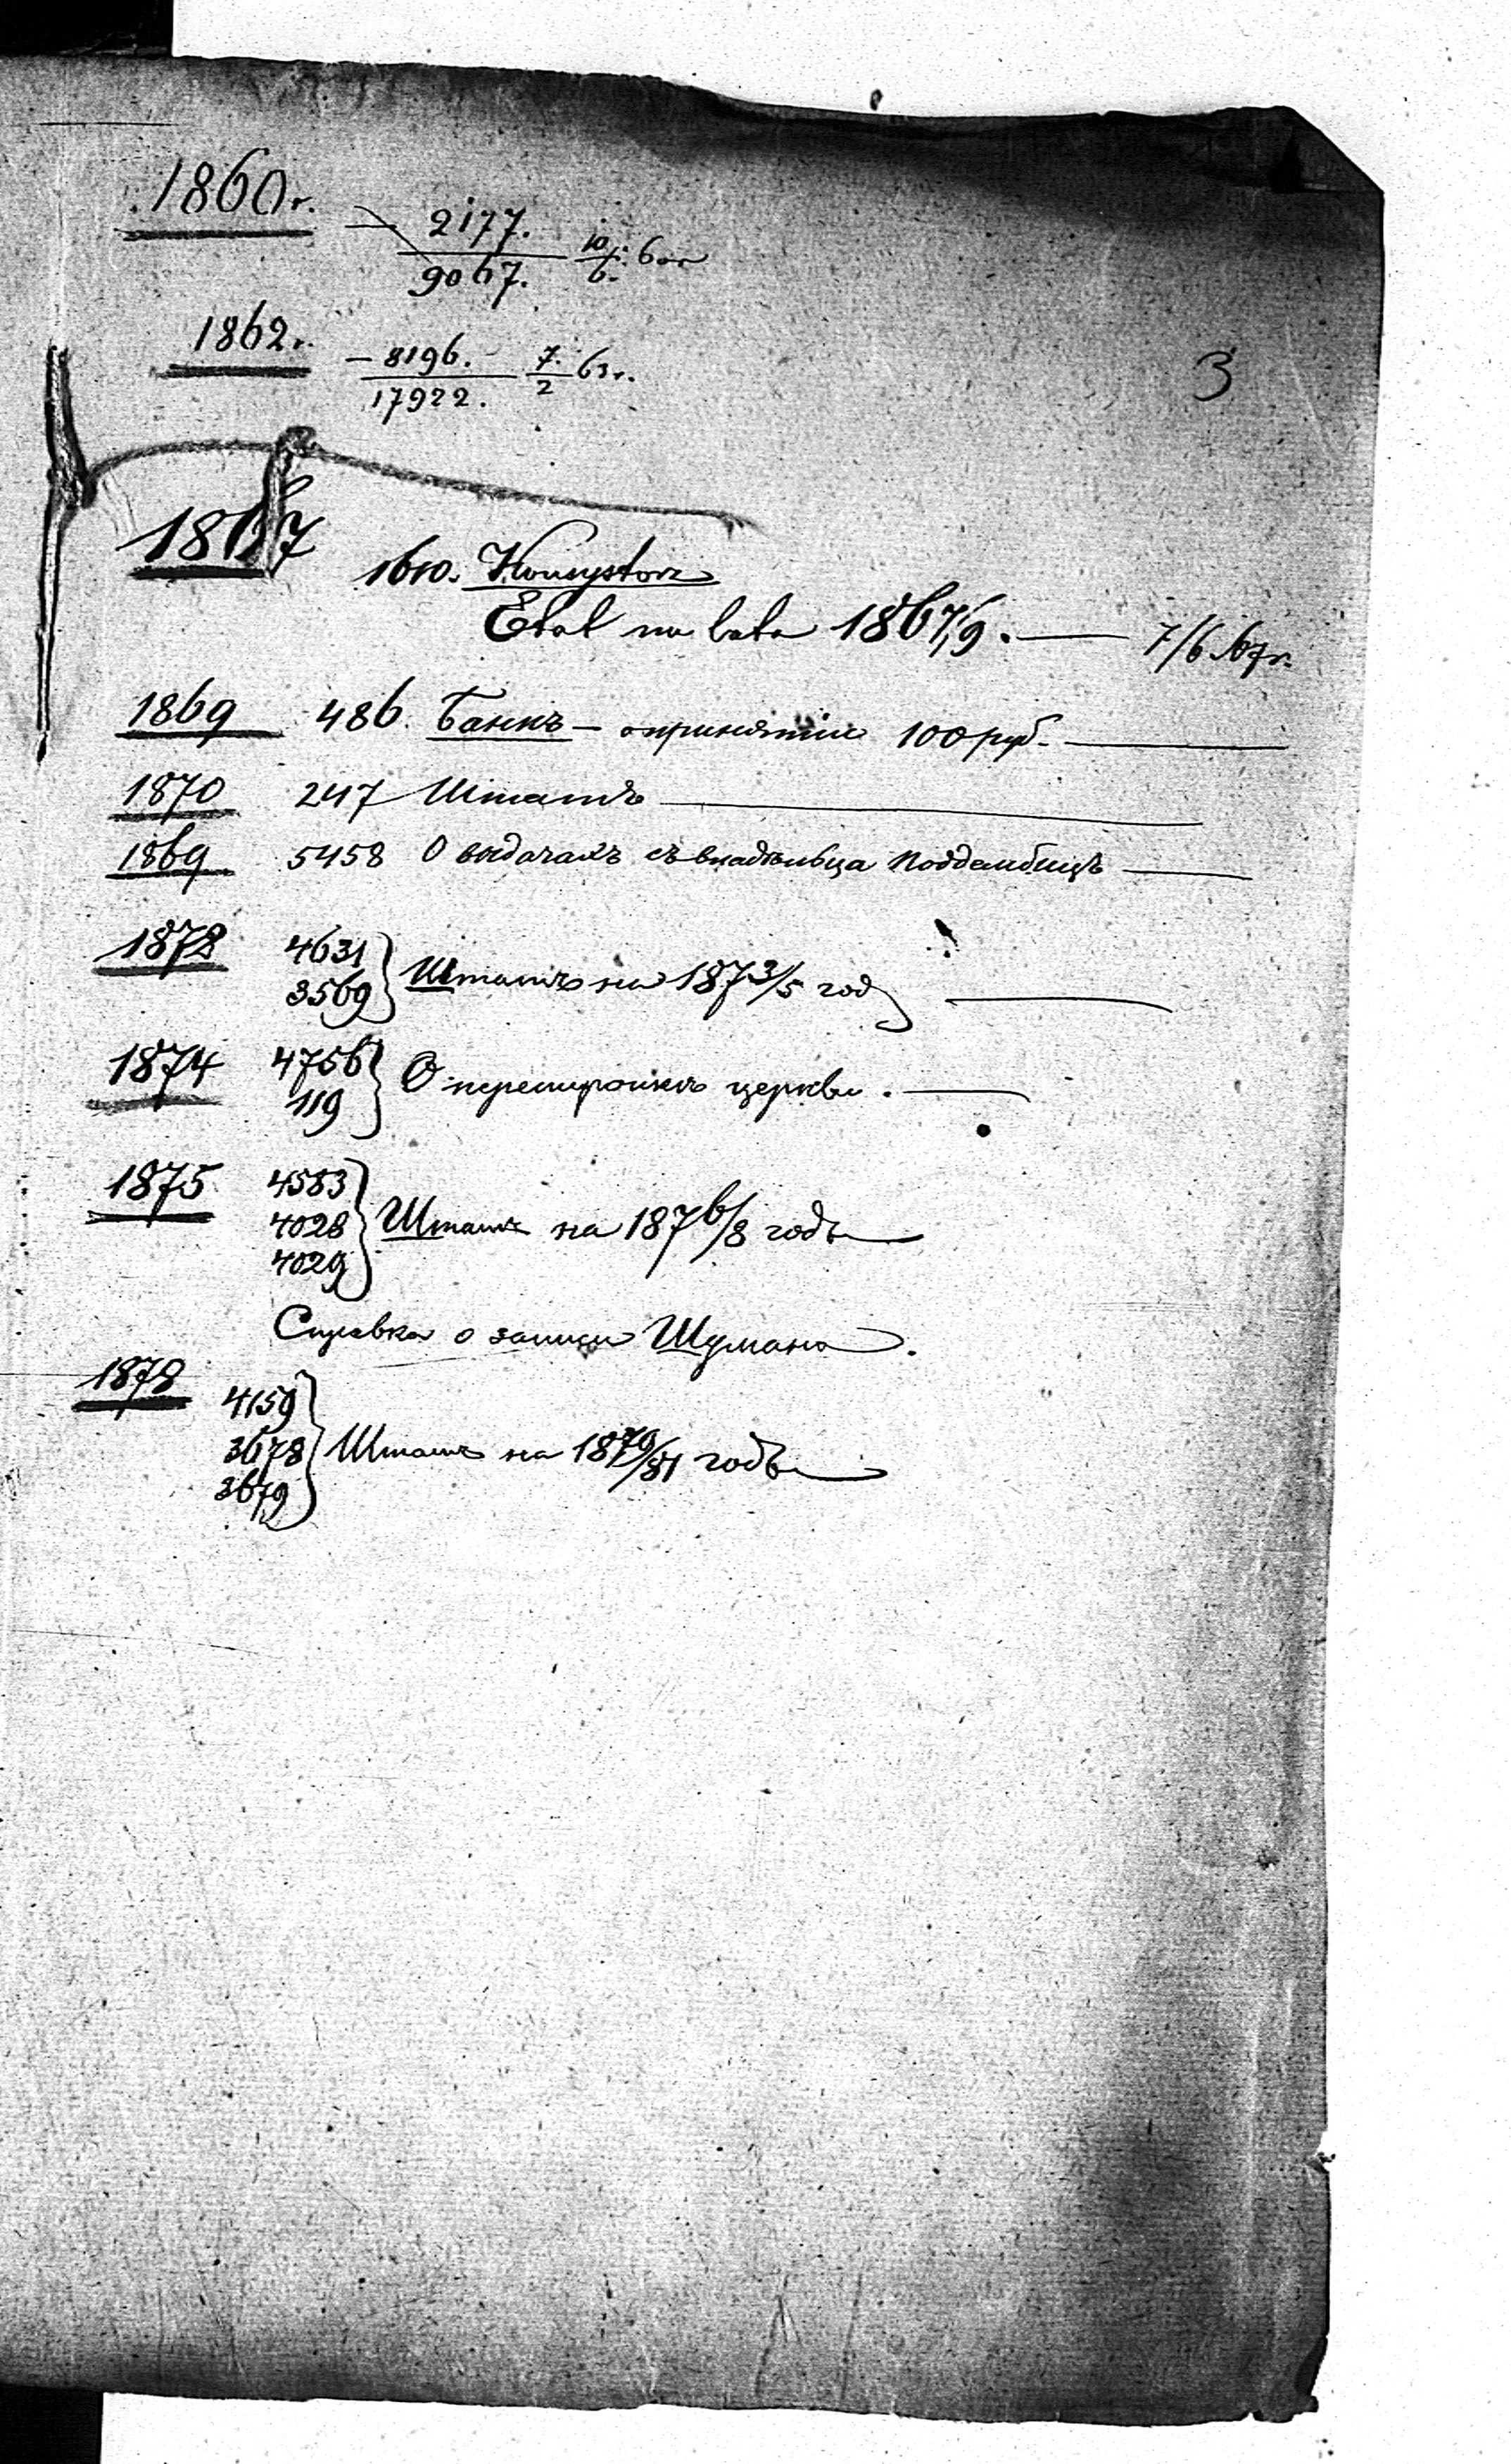 1860r.
2177. / 9067. 10/6. 60r
1862r.
— 8196. / 17922. 7./2 63r.
3
1867
1610. Konsystorz
Etat na lata 1867/9. — 7/6 67r.
1869 486. Банкъ — о принятіи 100 руб. —
1870 247 Штатъ —
1869 5458 О выдачахъ съ владѣльца Поддембицъ —
1872 4631
3569 } Штатъ на 1873/5 год —
1874 4756
119 } О церкви. —
1875 4583
4028
4029 } Штатъ на 1876/8 годъ
Справка о записи Шумана.
1878 4159
3678
3679 } Штатъ на 1879/81 годъ